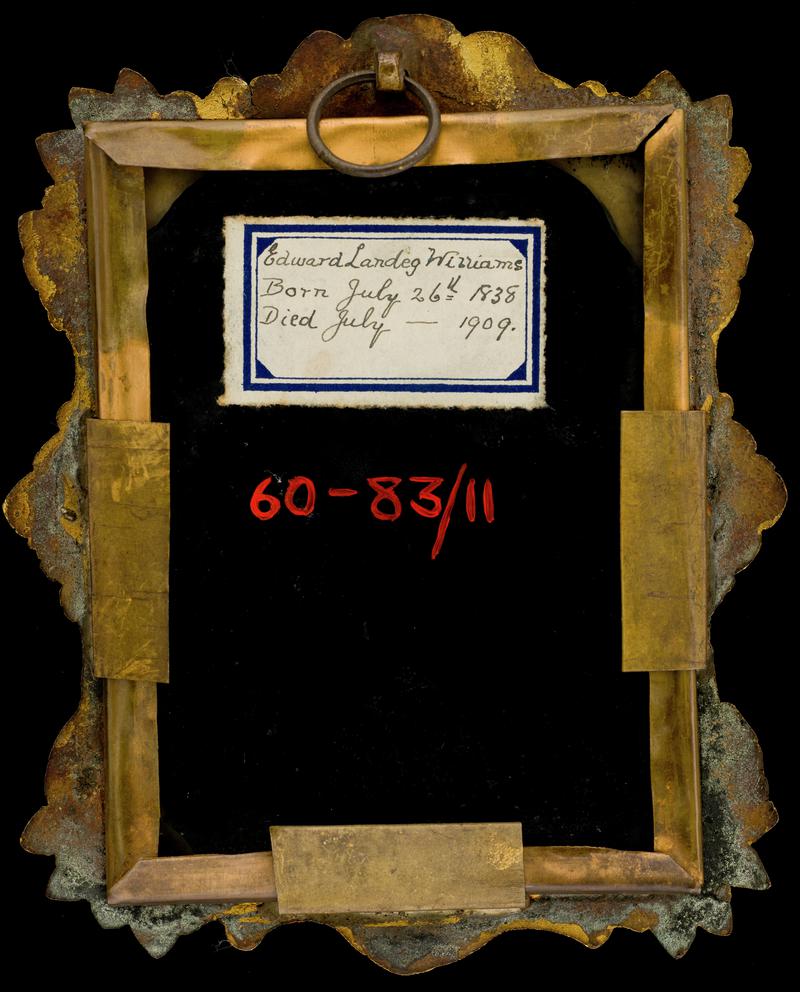 Edward Landeg Williams
Born July 26th 1838
Died July — 1909.
60-83/11